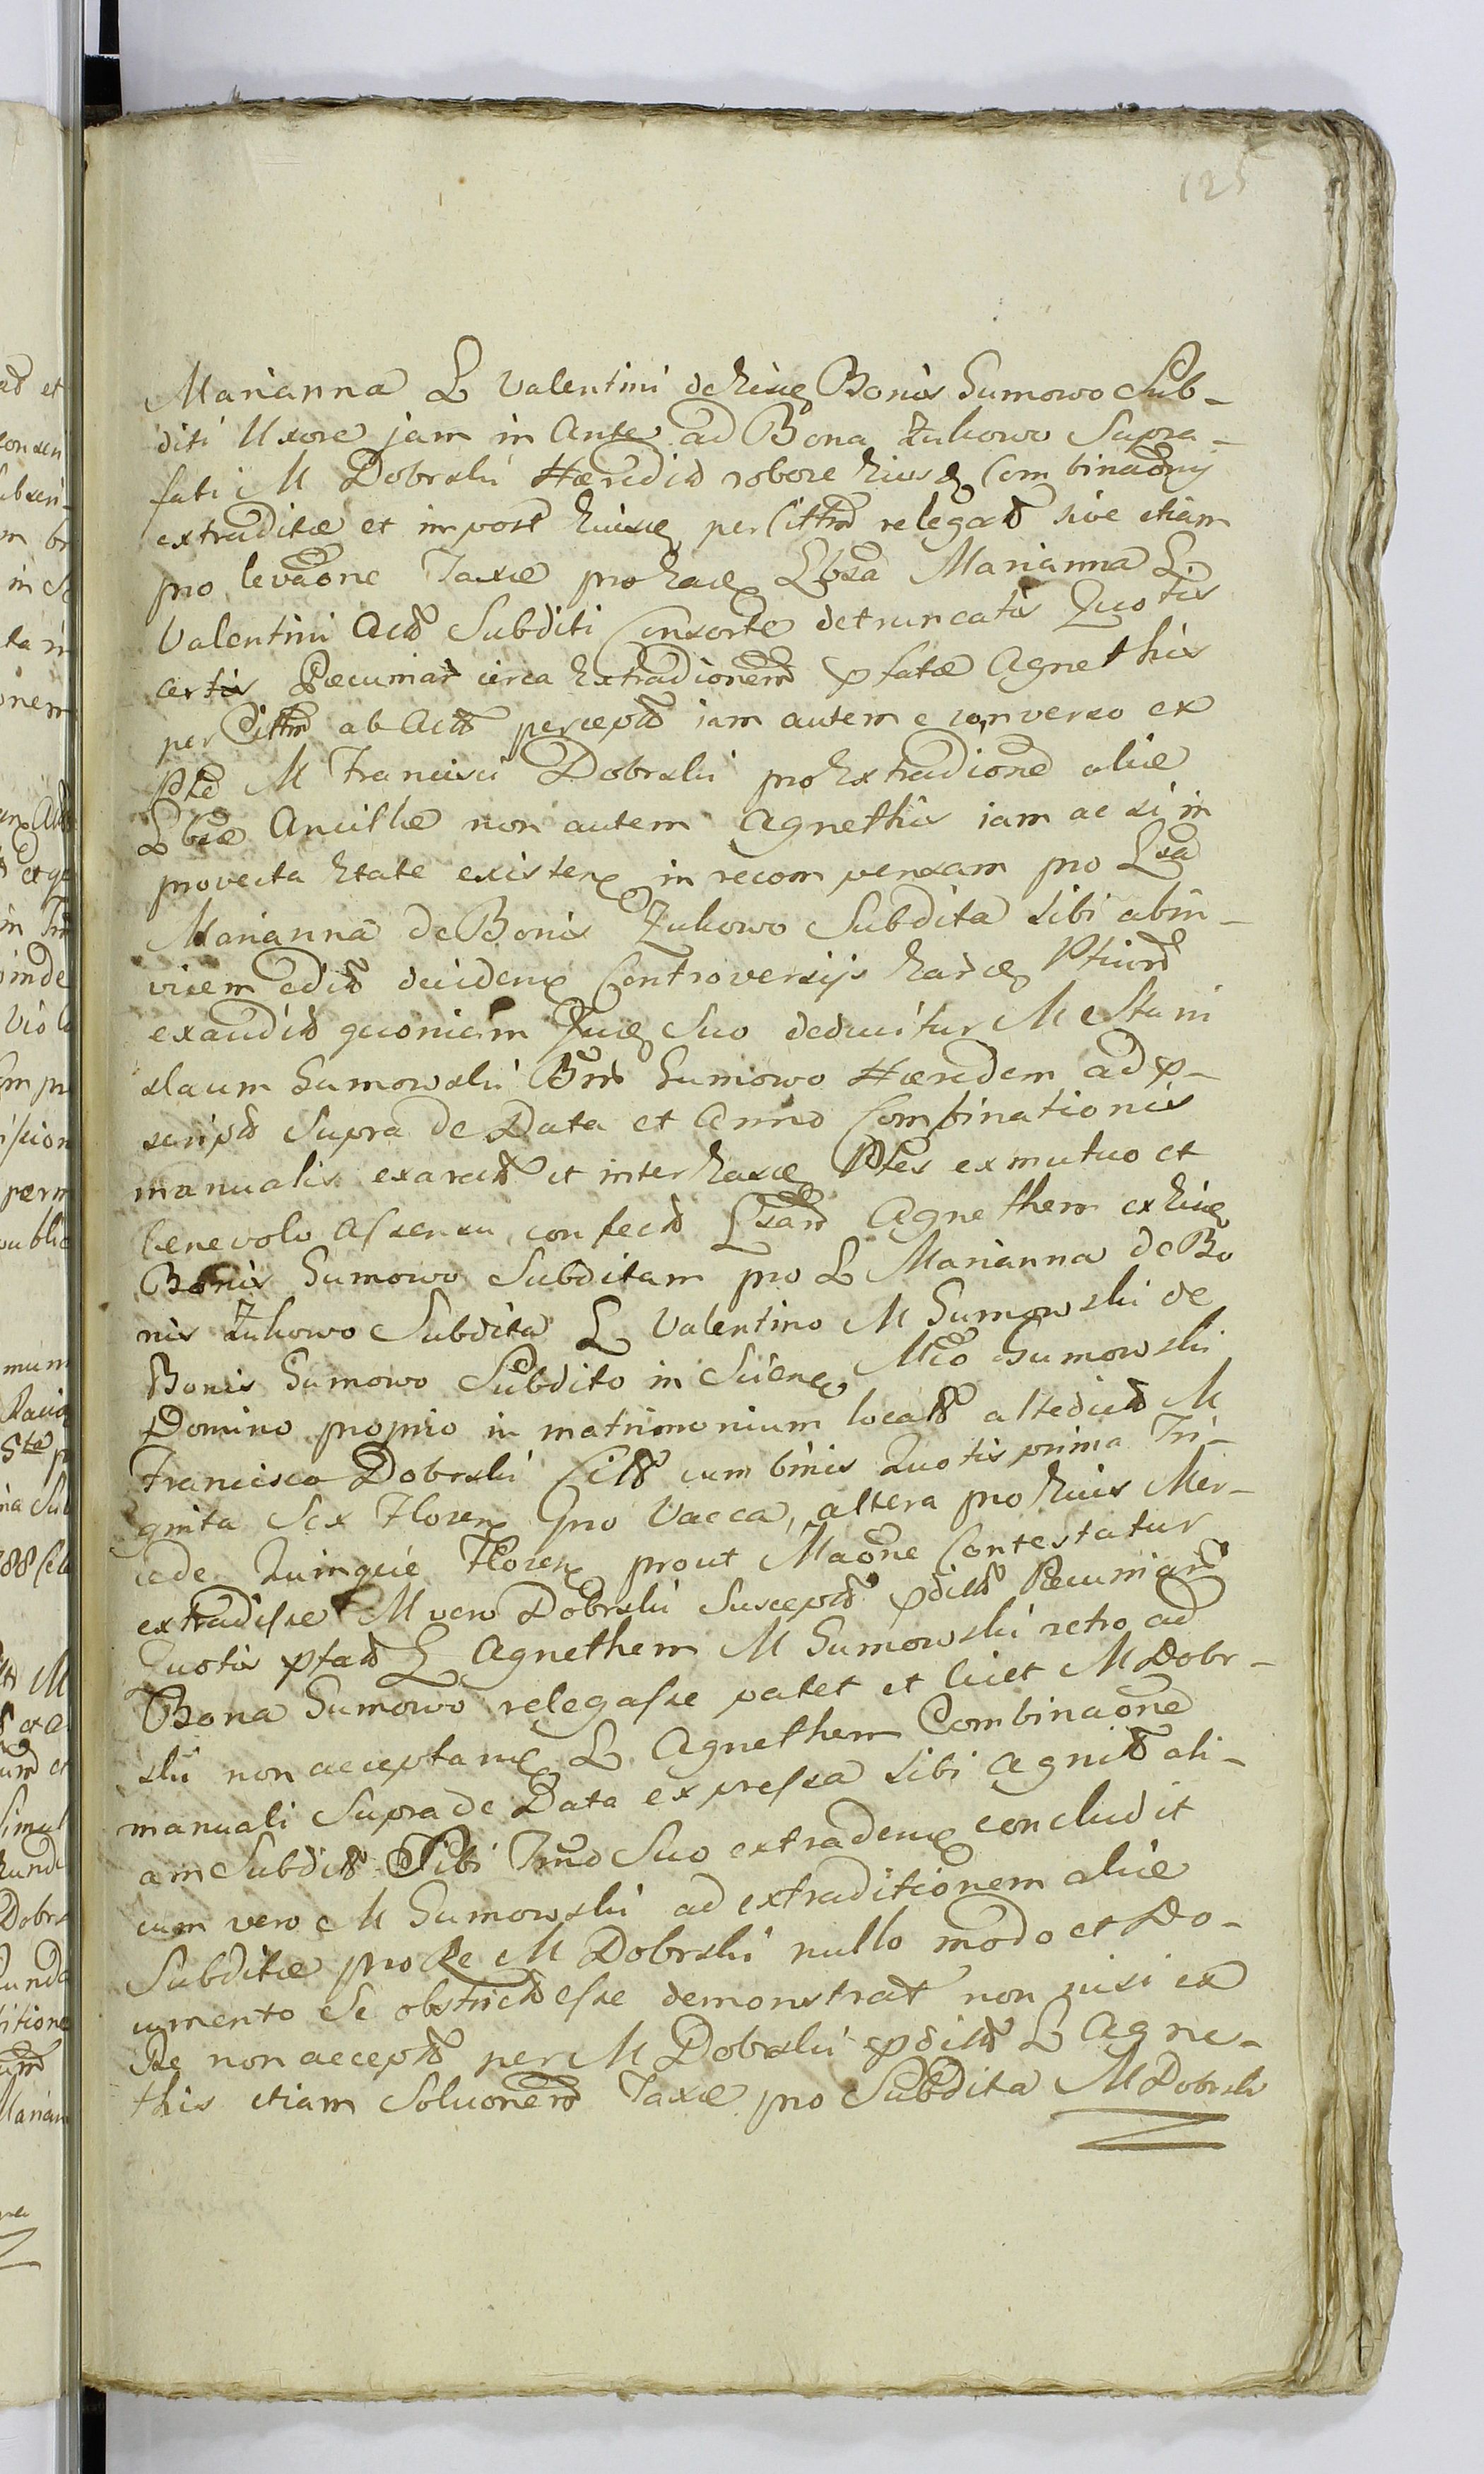 125
Marianna L Valentini de hisce Bonis Gumowo Sub-
diti Uxore jam in Ante ad Bona Żukowo Supra-
fati M Dobrski Hæredis robore Combinaōnis
extraditæ et impost per Cittm̄ relegat̄ sive etiam
pro levaōne Taxæ pro hace Lbsa Marianna L
Valentini Subditi Consorte detruncatis Quotis
certis Pecuniar̄ circa Extradionem̄ pfatæ Agnethis
per Cittm̄ ab percept̄ iam autem e converso ex
Pte M Francisci Dobrski pro Extradione aliæ
Lbsæ Ancillæ non autem Agnethis iam ac si in
provecta Etate existen in recompensam pro Lsa
Marianna de Bonis Żukowo Subdita sibi abin-
vicem deciden Controversijs harce Ptium̄
exaudit̄ quoniam Suo deducitur M Stani
slaum Gumowski Gumowo Hæredem ad p-
script̄ Supra de Data et Anno Combinationis
manualis exarat̄ et inter hasce Ptes ex mutuo et
benevolo assensu confect̄ Lsam̄ Agnethem ex hisce
Bonis Gumowo Subditam pro L Marianna de Bo
nis Żukowo Subdita L Valentino M Gumowski de
Bonis Gumowo Subdito in Scien Mco Gumowski
Domino proprio in matrimonium locat̄ altedict̄ M
Francisco Dobrski Citt̄ cum binis Quotis prima Tri-
ginta Sex Floren pro Vacca, altera pro huius Mer-
cede Quinque Floren prout Maōne Contestatur
extradisse M vero Dobrski Suscept̄ pdict̄ Pecuniar̄
Quotis pfat̄ L Agnethem M Gumowski retro ad
Bona Gumowo relegasse patet et licet M Dobr-
ski non acceptan L Agnethem Combinaōne
manuali Supra de Data expressa sibi Agnit̄ ali-
am Subdit̄ Sibi Suo extraden concludit
cum vero M Gumowski ad extraditionem aliæ
Subditæ pro Se M Dobrski nullo modo et Do-
cumento Se obstrict̄ esse demonstrat̄ non nisi ex
Re non accept̄ per M Dobrski pdict̄ L Agne-
this etiam Soluonem̄ Taxæ pro Subdita M Dobrski